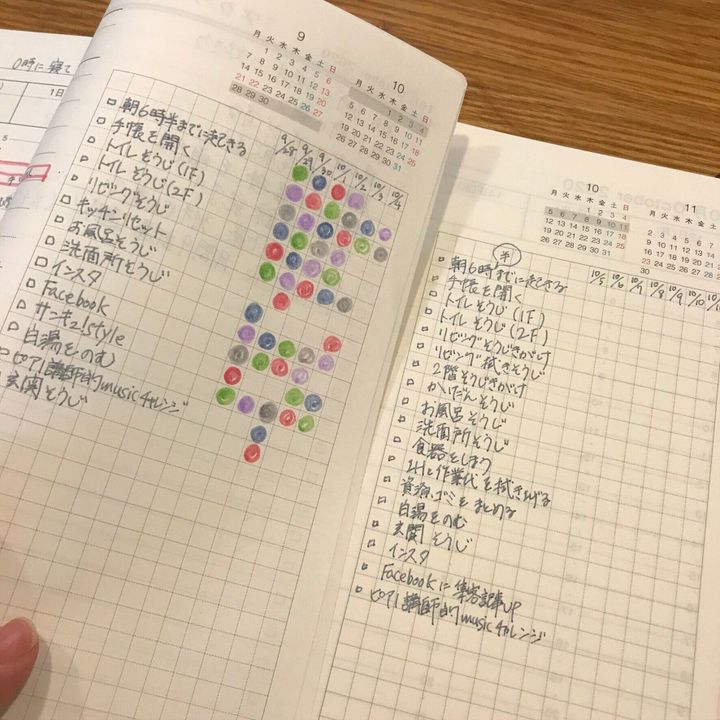 0時に寝て
9
月 火 水 木 金 土 日
1 2 3 4 5 6
7 8 9 10 11 12 13
14 15 16 17 18 19 20
21 22 23 24 25 26 27
28 29 30
10
月 火 水 木 金 土 日
1 2 3 4
5 6 7 8 9 10 11
12 13 14 15 16 17 18
19 20 21 22 23 24 25
26 27 28 29 30 31
9/28 9/29 9/30 10/1 10/2 10/3 10/4
朝6時半までに起きる
手帳を開く
トイレそうじ(1F)
トイレそうじ(2F)
リビングそうじ
キッチンリセット
お風呂そうじ
洗面所そうじ
インスタ
Facebook
サンキュ!style
白湯をのむ
ピアノ講師的musicチャレンジ
玄関そうじ
10
月 火 水 木 金 土 日
1 2 3 4
5 6 7 8 9 10 11
12 13 14 15 16 17 18
19 20 21 22 23 24 25
26 27 28 29 30 31
11
月 火 水 木 金 土
2 3 4 5
9 10 11
16 17 18
23 24 25
30
10/5 10/6 10/7 10/8 10/9 10/10
朝6時までに起きる
手帳を開く
トイレそうじ(1F)
トイレそうじ(2F)
リビングそうじきがけ
リビング拭きそうじ
2階そうじきがけ
かいだんそうじ
お風呂そうじ
洗面所そうじ
食器をしまう
IHと作業代を拭きあげる
資源ゴミをまとめる
白湯をのむ
玄関そうじ
インスタ
Facebookに集客記事UP
ピアノ講師的musicチャレンジ